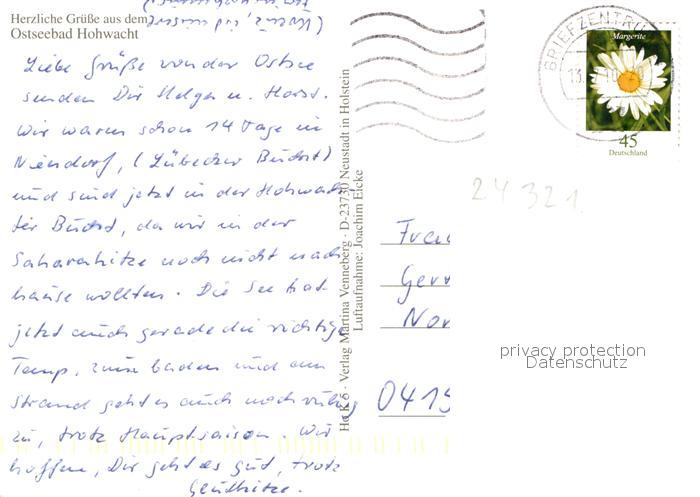 Herzliche Grüße aus dem
Ostseebad Hohwacht
Liebe Grüße von der Ostsee
senden Dir Helga u. Horst.
Wir waren schon 14 Tage in
Niendorf, (Lübecker Bucht)
und sind jetzt in der Hohwach-
ter Bucht, da wir in der
Saharahitze noch nicht nach
hause wollten. Die See hat
jetzt auch gerade die richtige
Temp. zum baden und am
Strand geht es auch noch ruhig
zu, trotz Hauptsaison. Wir
hoffen, Dir geht es gut, trotz
Gluthitze.
Ho K 5 · Verlag Martina Venneberg · D-23730 Neustadt in Holstein
Luftaufnahme: Joachim Eicke
BRIEFZENTRUM
13.
Margerite
45
Deutschland
24321
Frau
Ger
Nor
0415
privacy protection
Datenschutz